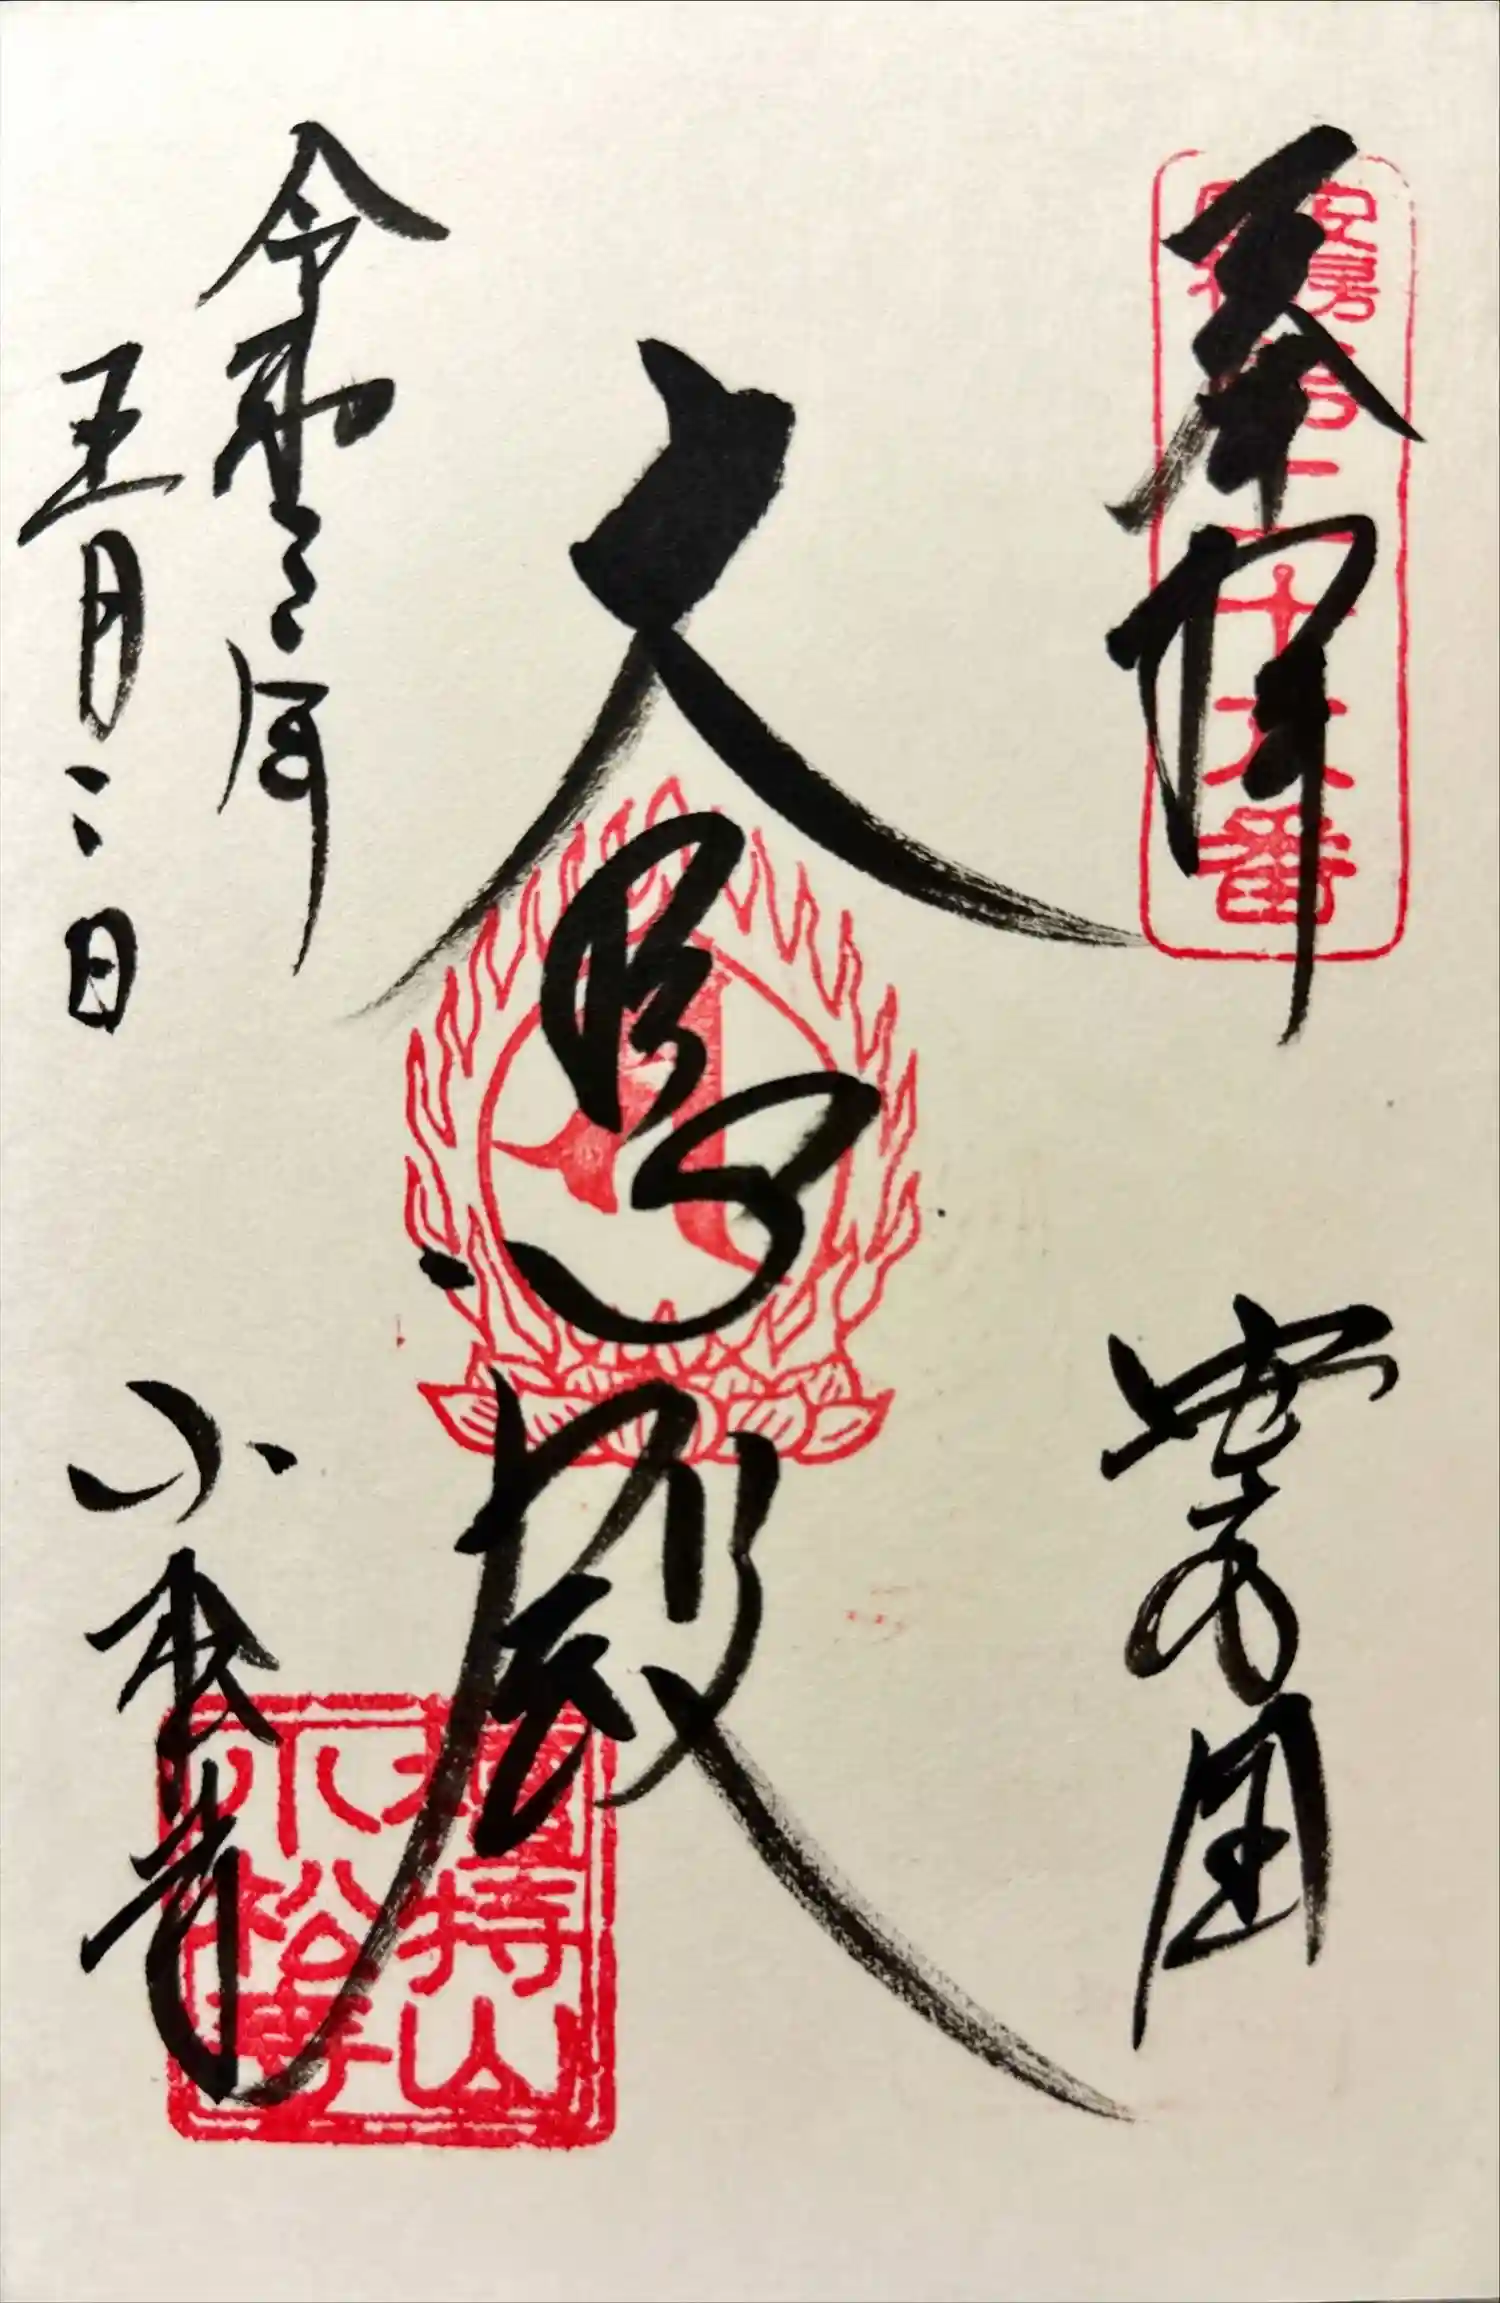 奉拝
安房の国
大悲殿
令和三年
五月二日
小松寺
檀特山
小松寺